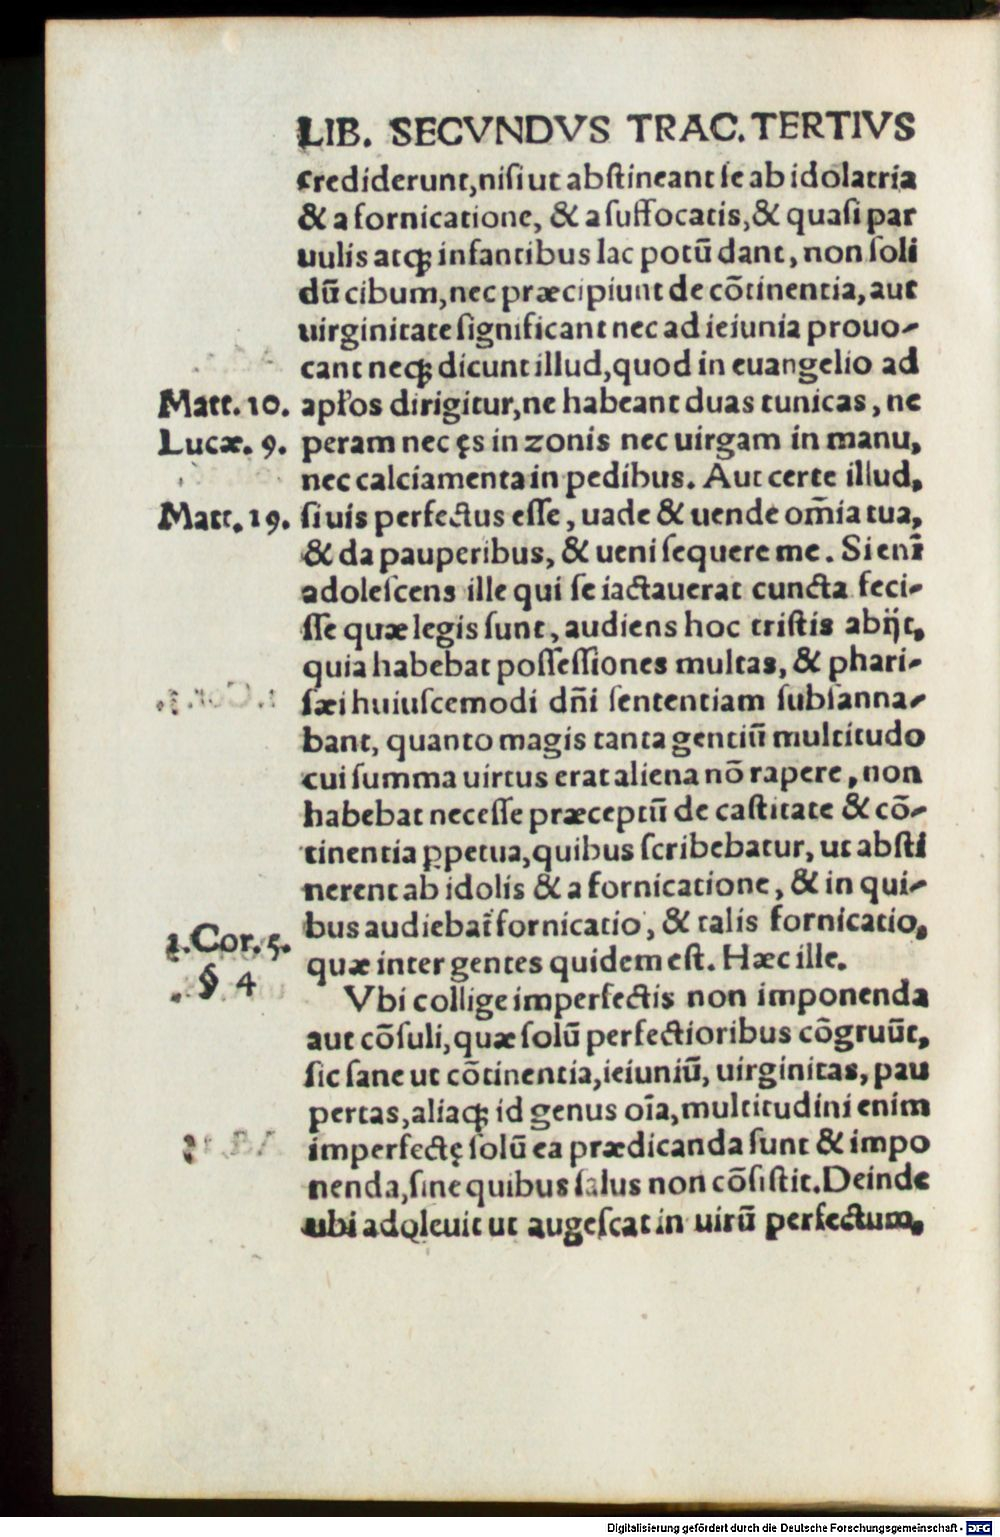 LIB. SECVNDVS TRAC. TERTIVS
crediderunt, nisi ut abſtineant ſe ab idolatria
& a fornicatione, & a ſuffocatis, & quaſi par
uulis atꝗ infantibus lac potū dant, non ſoli
dū cibum, nec præcipiunt de cōtinentia, aut
uirginitate ſignificant nec ad ieiunia prouo-
cant neꝗ dicunt illud, quod in euangelio ad
Matt. 10. apłos dirigitur, ne habeant duas tunicas, ne
Lucæ. 9. peram nec ęs in zonis nec uirgam in manu,
nec calciamenta in pedibus. Aut certe illud,
Matt. 19. ſi uis perfectus eſſe, uade & uende om̄ia tua,
& da pauperibus, & ueni ſequere me. Si enī
adoleſcens ille qui ſe iactauerat cuncta feci-
ſſe quæ legis ſunt, audiens hoc triſtis abijt,
quia habebat poſſeſſiones multas, & phari-
ſæi huiuſcemodi dñi ſententiam ſubſanna-
bant, quanto magis tanta gentiū multitudo
cui ſumma uirtus erat aliena nō rapere, non
habebat neceſſe præceptū de caſtitate & cō-
tinentia ꝑpetua, quibus ſcribebatur, ut abſti
nerent ab idolis & a fornicatione, & in qui-
bus audiebat̃ fornicatio, & talis fornicatio,
1. Cor. 5. quæ inter gentes quidem eſt. Hæc ille.
§ 4 Vbi collige imperfectis non imponenda
aut cōſuli, quæ ſolū perfectioribus cōgruūt,
ſic ſane ut cōtinentia, ieiuniū, uirginitas, pau
pertas, aliaꝗ id genus oīa, multitudini enim
imperfectę ſolū ea prædicanda ſunt & impo
nenda, ſine quibus ſalus non cōſiſtit. Deinde
ubi adoleuit ut augeſcat in uirū perfectum,
Digitalisierung gefördert durch die Deutsche Forschungsgemeinschaft - DFG